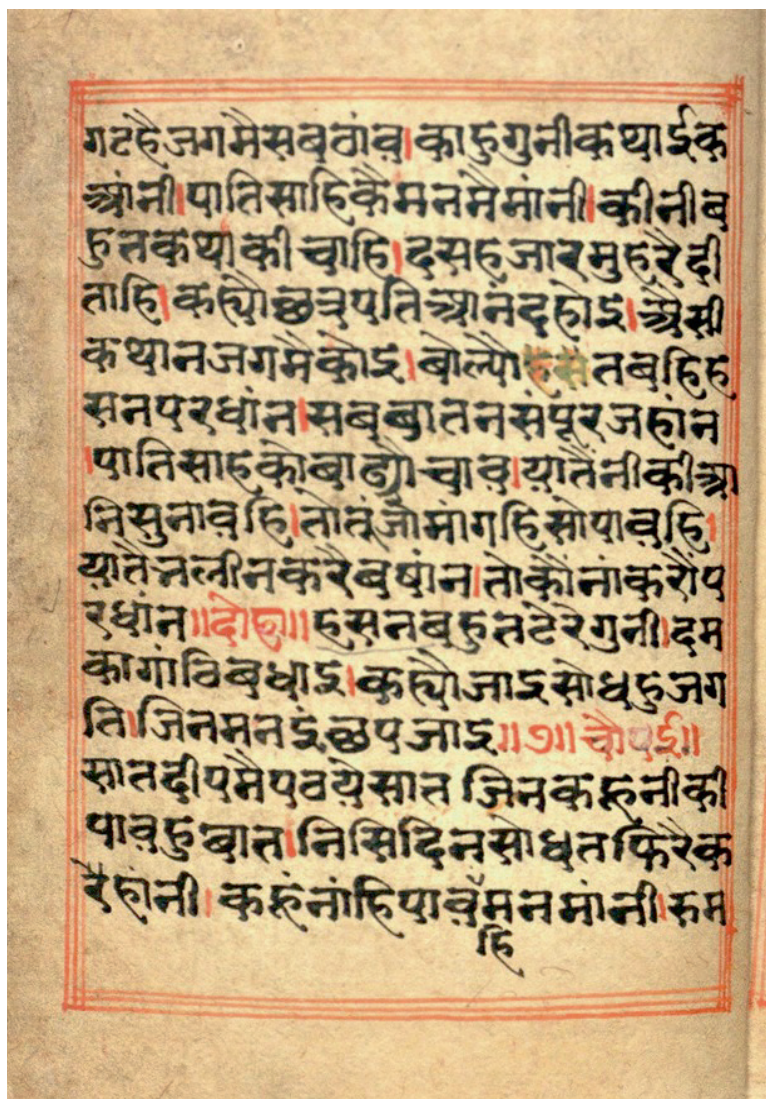 गटहैजगमैसबठांव।काहुगुनीकथाईक
आंनी।पातिसाहिकैमनमैमांनी।कीनीब
हुतकथाकीचाहि।दसहजारमुहरैदी
ताहि।कह्यौछत्रपतिआनंदहोइ।अैसी
कथानजगमैकोइ।बोल्यौहसतबहिह
सनपरधांन।सबबातनसंपूरजहांन
।पातिसाहकोबाढ्यौचाव।यातैनीकीआ
निसुनावहि।तौतूंजोमांगहिसोपावहि।
यातैनलीनकरैबषांन।तोकौंनांकरौंप
रधांन॥दोहा॥हसनबहुतटेरेगुनी।दम
कागांविबधाइ।कह्यौजाइसोधहुजग
ति।जिनमनइंछपजाइ॥७॥चौपई॥
सातदीपमैपवयेसात जिनकहूनीकी
पावहुबात।निसिदिनसोधतफिरैक
रैहांनी।कहूंनांहिपावैंमनमांनी।रूम
हि